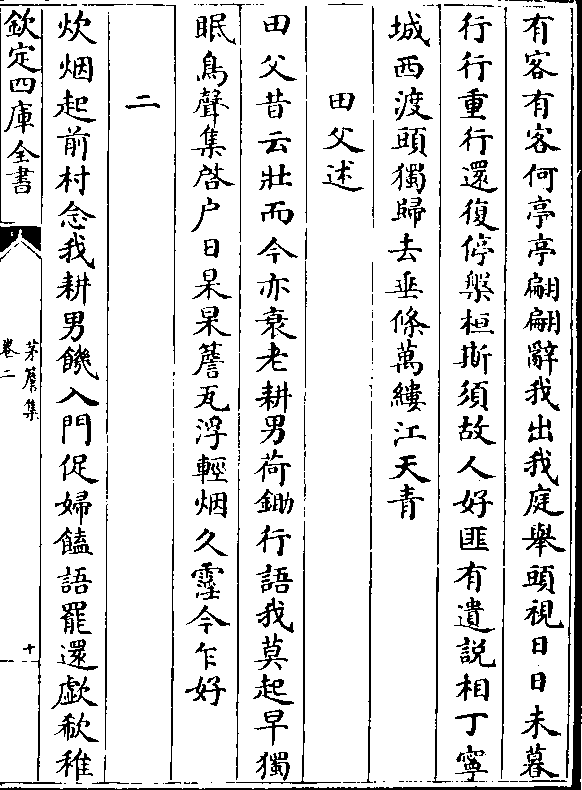 有客有客何亭亭翩翩辭我出我庭舉頭視日日未暮
行行重行還復停槃桓斯須故人好匪有遺説相丁寧
城西渡頭獨歸去垂條萬縷江天青
田父述
田父昔云壯而今亦衰老耕男荷鋤行語我莫起早獨
眠鳥聲集啓户日杲杲簷瓦浮輕烟久霾今乍好
二
炊烟起前村念我耕男饑入門促婦饁語罷還歔欷稚
欽定四庫全書
茅簷集
卷二
十